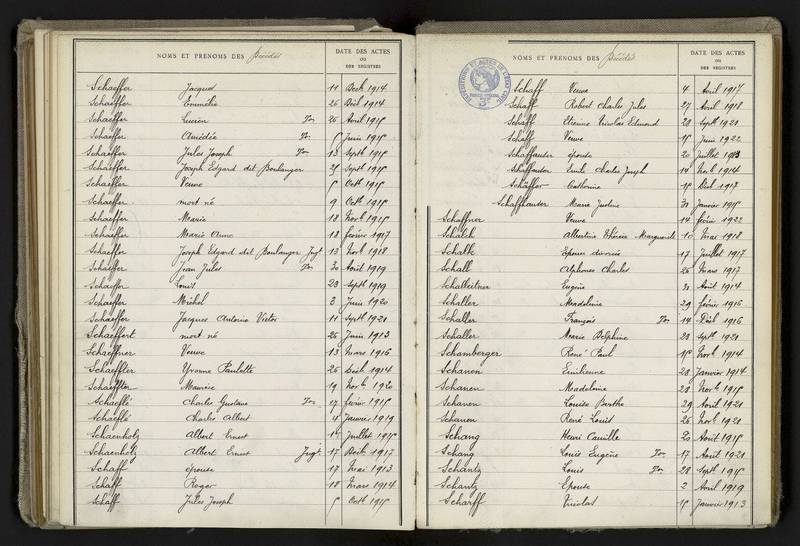 NOMS ET PRÉNOMS DES Décédés
DATE DES ACTES
OU
DES REGISTRES
Schaeffer Jacques 11 Bech 1914
Schaeffer Emmélie 26 Déc 1914
Schaeffer Lucien Ton 26 Avril 1915
Schaeffer Amédée Ton 5 Juin 1915
Schaeffer Jules Joseph Ton 13 Septb 1915
Schaeffer Joseph Edgard dit Boulanger Septb 1915
Schaeffer Veuve 5 Octb 1915
Schaeffer mort né 9 Octb 1915
Schaeffer Marie 18 Novb 1915
Schaeffer Marie Anne 12 février 1917
Schaeffer Joseph Edgard dit Boulanger Jugt 13 Novb 1918
Schaeffer Jean Jules Ton 30 Août 1919
Schaeffer Louis 23 Septb 1919
Schaeffer Michel 3 Juin 1920
Schaeffer Jacques Antoine Victor 11 Septb 1921
Schaeffert mort né 26 Juin 1913
Schaeffner Veuve 13 Mars 1916
Schaeffler Yvonne Paulette 26 1914
Schaeffter Maurice 19 Novb 1920
Schaeflé Charles Gustave Ton 27 février 1915
Schaeflé Charles Albert 4 Janvier 1919
Schaenholz Albert Ernest Juillet 1915
Schaenholz Albert Ernest Jugt 17 1917
Schaff épouse 17 Mai 1913
Schaff Roger 18 Mars 1914
Schaff Jules Joseph 5 Octb 1915
NOMS ET PRÉNOMS DES Décédés
DATE DES ACTES
OU
DES REGISTRES
Schaff Veuve 4 Avril 1917
Schaff Robert Charles Jules 27 Avril 1918
Schaff Etienne Nicolas Edmond 28 Septb 1920
Schaff Veuve 15 Juin 1922
Schaffauser épouse 20 Juillet 1913
Schaffauser Emile Charles Joseph 14 Novb 1914
Schäffer Catherine 15 1917
Schaffhauser Marie Justine 31 Janvier 1915
Schaffner Veuve 14 février 1922
Schalch Albertine Thérèse Marguerite 10 Mai 1918
Schalk Epoux divorcée 17 Juillet 1917
Schall Alphonse Charles 26 Mars 1917
Schalleitner Eugène Août 1914
Schaller Madeleine 29 février 1916
Schaller François Ton 14 1916
Schaller Marie Delphine 23 Septb 1920
Schamberger René Paul 15 Novb 1914
Schanen Emilienne 20 Janvier 1914
Schanen Madeleine 20 Novb 1915
Schanen Louise Berthe 29 Avril 1921
Schanen René Louis 26 Novb 1921
Schang Henri Camille 20 Août 1915
Schang Louis Eugène Ton 17 Août 1921
Schantz Louis Ton 28 Septb 1915
Schantz Epouse 2 Avril 1919
Scharff Nicolas 15 Janvier 1913